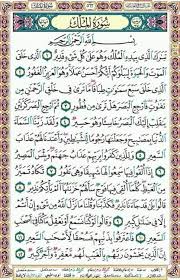 سُورَةُ الْمُلْكِ
بِسْمِ اللَّهِ الرَّحْمَٰنِ الرَّحِيمِ
تَبَٰرَكَ الَّذِي بِيَدِهِ الْمُلْكُ وَهُوَ عَلَىٰ كُلِّ شَيْءٍ قَدِيرٌ ١ الَّذِي خَلَقَ
الْمَوْتَ وَالْحَيَوٰةَ لِيَبْلُوَكُمْ أَيُّكُمْ أَحْسَنُ عَمَلًا وَهُوَ الْعَزِيزُ الْغَفُورُ ٢
الَّذِي خَلَقَ سَبْعَ سَمَٰوَٰتٍ طِبَاقًا مَا تَرَىٰ فِي خَلْقِ الرَّحْمَٰنِ مِنْ
تَفَٰوُتٍ فَارْجِعِ الْبَصَرَ هَلْ تَرَىٰ مِنْ فُطُورٍ ٣ ثُمَّ ارْجِعِ الْبَصَرَ كَرَّتَيْنِ
يَنْقَلِبْ إِلَيْكَ الْبَصَرُ خَاسِئًا وَهُوَ حَسِيرٌ ٤ وَلَقَدْ زَيَّنَّا السَّمَاءَ
الدُّنْيَا بِمَصَٰبِيحَ وَجَعَلْنَٰهَا رُجُومًا لِلشَّيَٰطِينِ وَأَعْتَدْنَا لَهُمْ عَذَابَ
السَّعِيرِ ٥ وَلِلَّذِينَ كَفَرُوا بِرَبِّهِمْ عَذَابُ جَهَنَّمَ وَبِئْسَ الْمَصِيرُ
٦ إِذَا أُلْقُوا فِيهَا سَمِعُوا لَهَا شَهِيقًا وَهِيَ تَفُورُ ٧ تَكَادُ تَمَيَّزُ
مِنَ الْغَيْظِ كُلَّمَا أُلْقِيَ فِيهَا فَوْجٌ سَأَلَهُمْ خَزَنَتُهَا أَلَمْ يَأْتِكُمْ نَذِيرٌ
٨ قَالُوا بَلَىٰ قَدْ جَاءَنَا نَذِيرٌ فَكَذَّبْنَا وَقُلْنَا مَا نَزَّلَ اللَّهُ مِنْ شَيْءٍ إِنْ أَنْتُمْ
إِلَّا فِي ضَلَٰلٍ كَبِيرٍ ٩ وَقَالُوا لَوْ كُنَّا نَسْمَعُ أَوْ نَعْقِلُ مَا كُنَّا فِي أَصْحَٰبِ
السَّعِيرِ ١٠ فَاعْتَرَفُوا بِذَنْبِهِمْ فَسُحْقًا لِأَصْحَٰبِ السَّعِيرِ ١١
إِنَّ الَّذِينَ يَخْشَوْنَ رَبَّهُمْ بِالْغَيْبِ لَهُمْ مَغْفِرَةٌ وَأَجْرٌ كَبِيرٌ ١٢